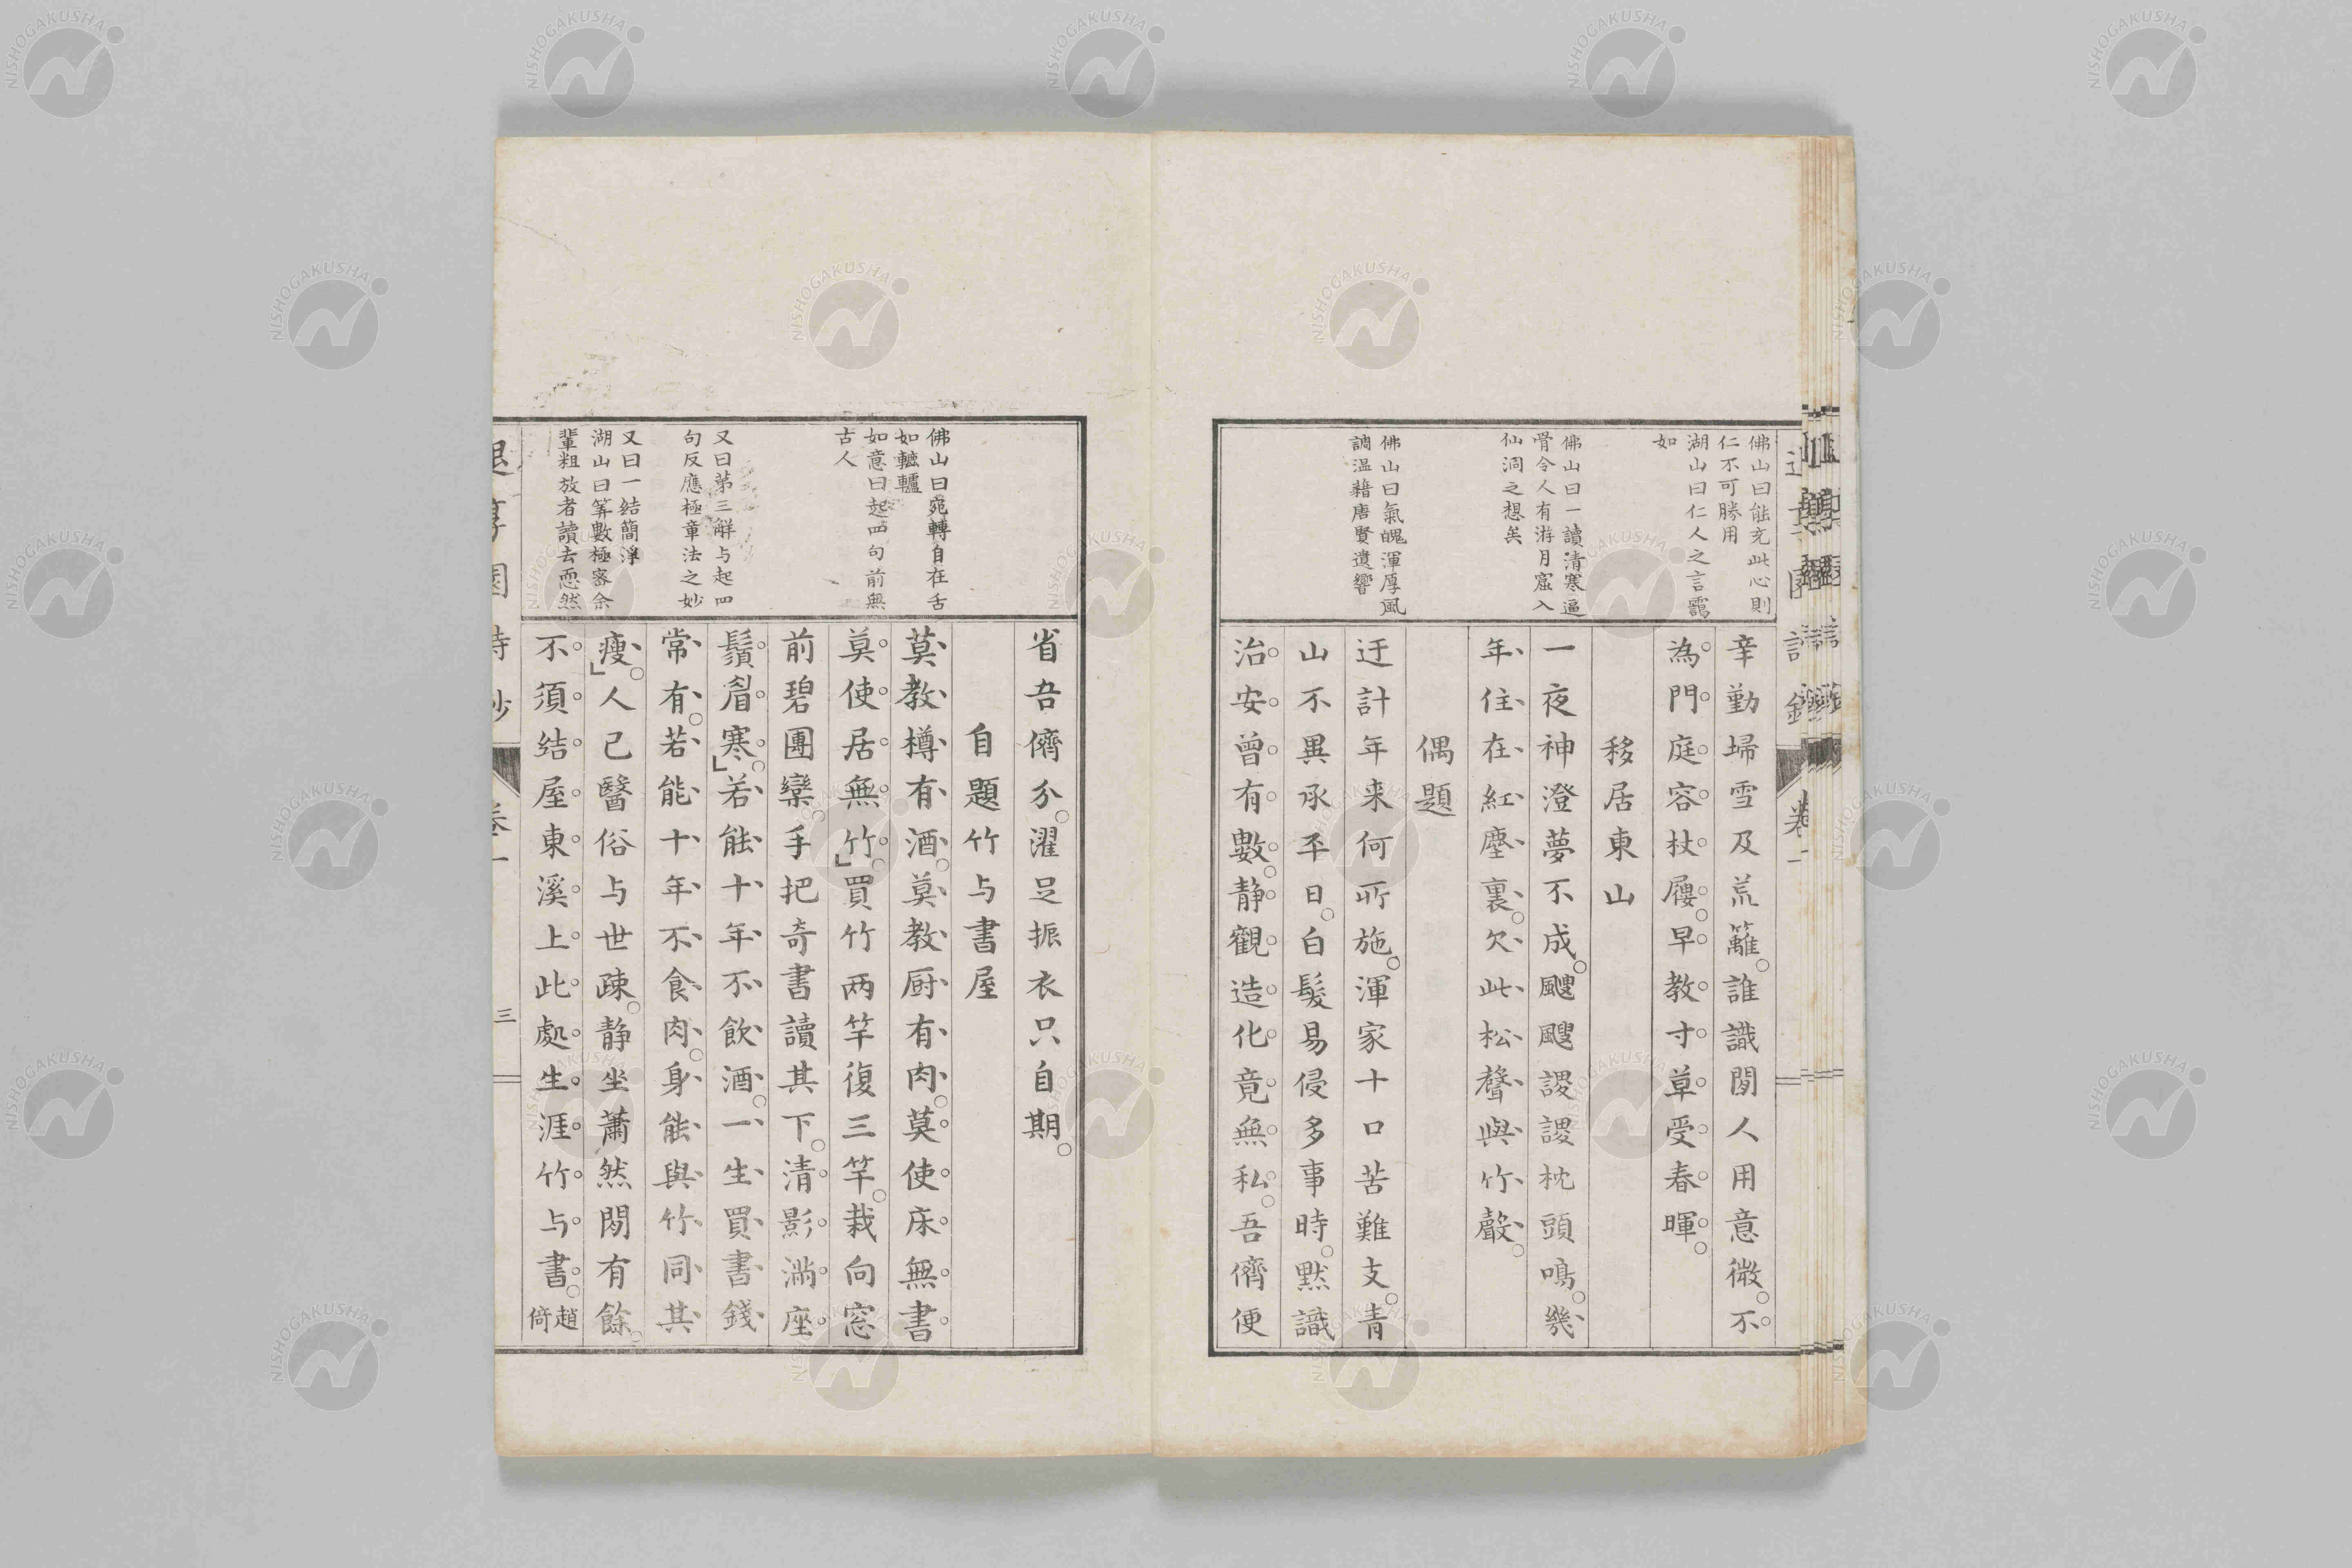 佛山曰能充此心則
仁不可勝用
湖山曰仁人之言靄
如
佛山曰一讀清寒逼
骨令人有游月窟入
仙洞之想矣
佛山曰氣魄渾厚風
調温藉唐賢遺響
辛勤埽雪及荒籬誰識閒人用意微不
為門庭容杖屨早教寸草受春暉
移居東山
一夜神澄夢不成颼颼謖謖枕頭鳴幾
年住在紅塵裏欠此松聲與竹聲
偶題
迂計年来何所施渾家十口苦難支青
山不異承平日白髮易侵多事時默識
治安曾有數静觀造化竟無私吾儕便
卷一
佛山曰宛轉自在舌
如轆轤
如意曰起四句前無
古人
又曰第三解与起四
句反應極章法之妙
又曰一結簡淨
湖山曰筭數極審余
輩粗放者讀去恧然
省吾儕分濯足振衣只自期
自題竹与書屋
莫教樽有酒莫教厨有肉莫使床無書
莫使居無竹買竹两竿復三竿栽向窓
前碧團欒手把奇書讀其下清影滿座
鬚眉寒若能十年不飲酒一生買書錢
常有若能十年不食肉身能與竹同其
瘦人已醫俗与世疎静坐蕭然閒有餘
不須結屋東溪上此處生涯竹与書趙
倚
三
NISHOGAKUSHA